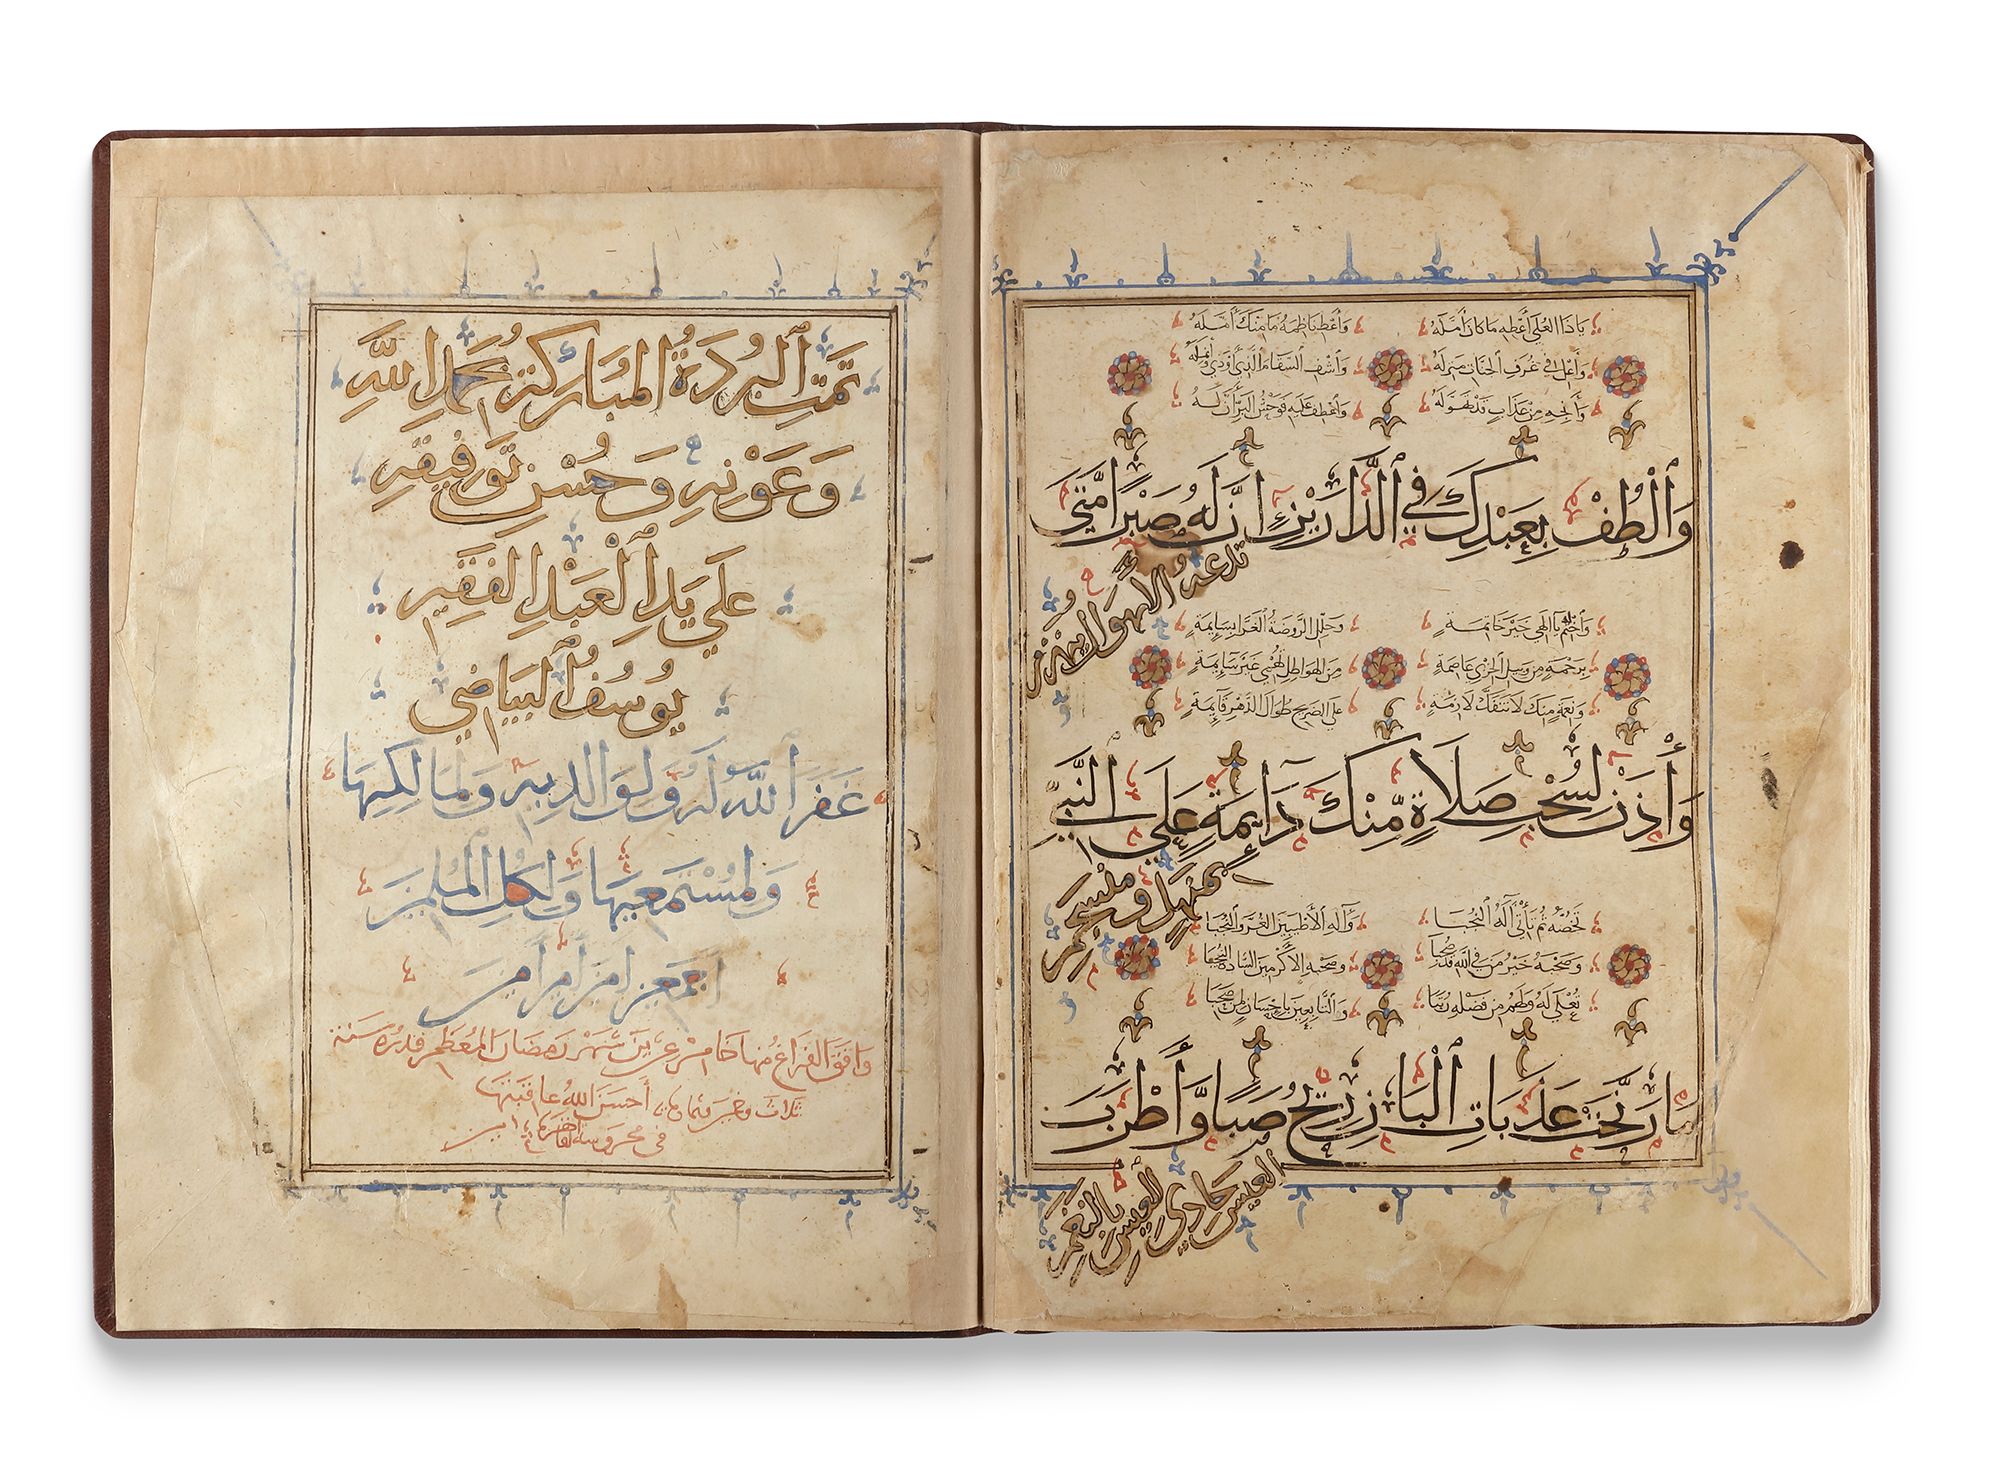 يَا ذَا الْعُلَى أَعْطِهِ مَا كَانَ أَمَّلَهُ وَأَعْطِ نَاظِمَهُ مَا مِنْكَ أَمَّلَهُ
وَأَعْلِ فِي غُرَفِ الْجَنَّاتِ مَنْزِلَهُ وَاشْفِ السَّقَامَ الَّذِي
وَأَنْجِهِ مِنْ عَذَابٍ قَدْ تَهَوَّلَهُ وَاعْطِفْ عَلَيْهِ
وَالْطُفْ بِعَبْدِكَ فِي الدَّارَيْنِ إِنَّ لَهُ صَبْرًا مَتَى
تَدْعُهُ الْأَهْوَالُ يَنْهَزِمِ
وَاخْتِمْ لَهُ يَا إِلَهِي خَيْرَ خَاتِمَةٍ وَحَيِّ الرَّوْضَةَ الْغَرَّا بِسَائِمَةٍ
بِرَحْمَةٍ مِنْ وَبِيلِ الْخِزْيِ عَاصِمَةٍ مِنَ الْهَوَاطِلِ تَهْمِي غَيْرَ سَائِمَةٍ
وَنِعْمَةٍ مِنْكَ لَا تَنْفَكُّ لَازِمَةٍ عَلَى الضَّرِيحِ طُوَالَ الدَّهْرِ قَائِمَةٍ
وَأْذَنْ لِسُحْبِ صَلَاةٍ مِنْكَ دَائِمَةٍ عَلَى النَّبِيِّ
بِمُنْهَلٍّ وَمُنْسَجِمِ
تَخُصُّهُ ثُمَّ يَأْتِي آلَهُ النُّجُبَا وَآلِهِ الْأَطْيَبِينَ الْغُرِّ وَالنُّجَبَا
وَصَحْبَهُ خَيْرَ مَنْ فِي اللَّهِ قَدْ صُحِبَا وَصَحْبِهِ الْأَكْرَمِينَ السَّادَةِ النُّجَبَا
تُعْلِي لَهُ وَلَهُمْ مِنْ فَضْلِهِ رُتَبًا وَالتَّابِعِينَ بِإِحْسَانٍ لِمَنْ صَحِبَا
مَا رَنَّحَتْ عَذَبَاتِ الْبَانِ رِيحُ صَبًا وَأَطْرَبَ
الْعِيسَ حَادِي الْعِيسِ بِالنَّغَمِ
تَمَّتِ الْبُرْدَةُ الْمُبَارَكَةُ بِحَمْدِ اللَّهِ
وَعَوْنِهِ وَحُسْنِ تَوْفِيقِهِ
عَلَى يَدِ الْعَبْدِ الْفَقِيرِ
يُوسُفَ الْبَيَاضِي
غَفَرَ اللَّهُ لَهُ وَلِوَالِدَيْهِ وَلِمَالِكِهَا
وَلِمُسْتَمِعِيهَا وَلِكُلِّ الْمُسْلِمِينَ
أَجْمَعِينَ آمِينَ آمِينَ آمِينَ
وَافَقَ الْفَرَاغُ مِنْهَا خَامِسَ عِشْرِينَ شَهْرِ رَمَضَانَ الْمُعَظَّمِ قَدْرُهُ سَنَةَ
ثَلَاثٍ وَخَمْسِينَ وَثَمَانِمِائَةٍ أَحْسَنَ اللَّهُ عَاقِبَتَهَا
فِي مَحْرُوسَةِ الْقَاهِرَةِ آمين